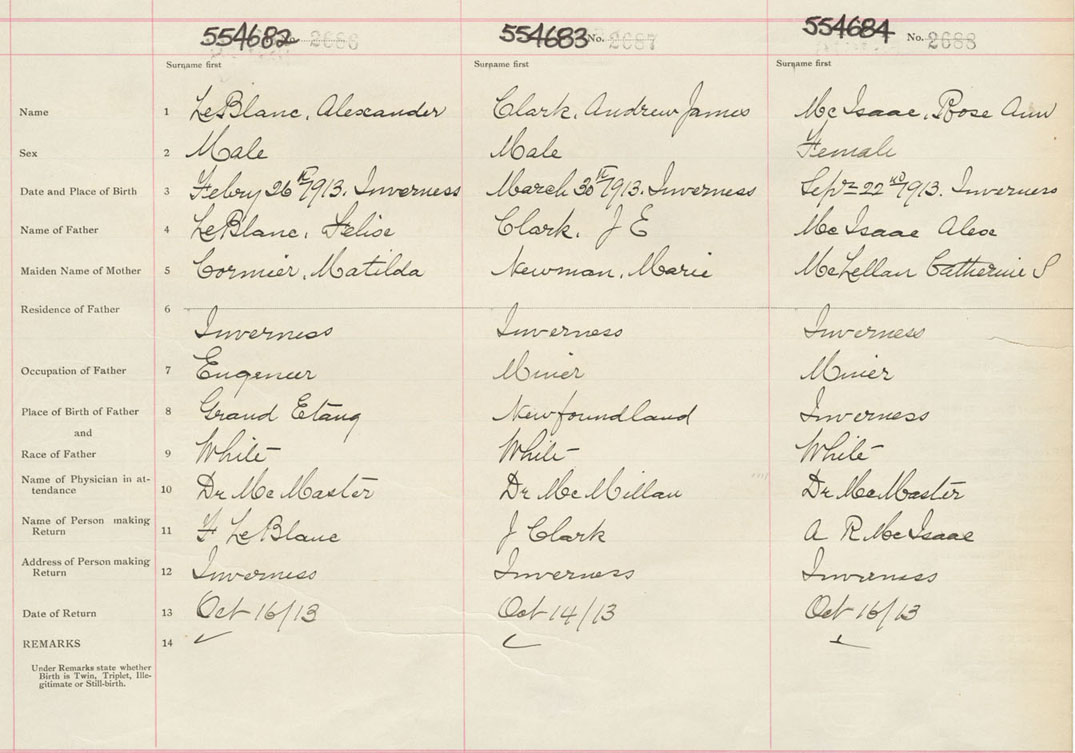 554682 No. 2686 554683 No. 2687 554684 No. 2688
Surname first Surname first Surname first
Name 1 LeBlanc, Alexander Clark, Andrew James Mc Isaac, Rose Ann
Sex 2 Male Male Female
Date and Place of Birth 3 Febry 26th 1913. Inverness March 30th 1913. Inverness Sept 22nd 1913. Inverness
Name of Father 4 LeBlanc, Felise Clark, J E Mc Isaac Alex
Maiden Name of Mother 5 Cormier, Matilda Newman, Marie McLellan Catherine S
Residence of Father 6
Inverness Inverness Inverness
Occupation of Father 7 Engeneer Miner Miner
Place of Birth of Father 8 Grand Etang Newfoundland Inverness
and
Race of Father 9 White White White
Name of Physician in at-
tendance 10 Dr Mc Master Dr McMillan Dr McMaster
Name of Person making
Return 11 F LeBlanc J Clark A R McIsaac
Address of Person making
Return 12 Inverness Inverness Inverness
Date of Return 13 Oct 16/13 Oct 14/13 Oct 16/13
REMARKS 14
Under Remarks state whether
Birth is Twin, Triplet, Ille-
gitimate or Still-birth.